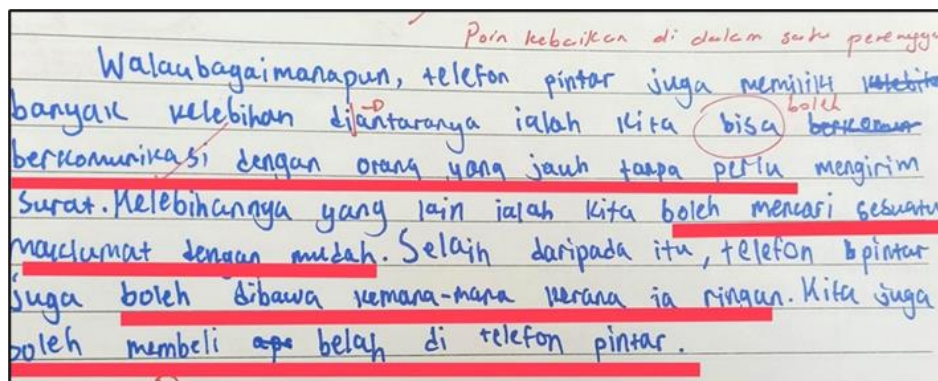 Poin kebaikan di dalam satu
Walaubagaimanapun, telefon pintar juga memiliki
boleh
banyak kelebihan diantaranya ialah kita bisa
berkomunikasi dengan orang yang jauh tanpa perlu mengirim
surat. Kelebihannya yang lain ialah kita boleh mencari sesuatu
maklumat dengan mudah. Selain daripada itu, telefon pintar
juga boleh dibawa kemana-mana kerana ia ringan. Kita juga
boleh membeli belah di telefon pintar.